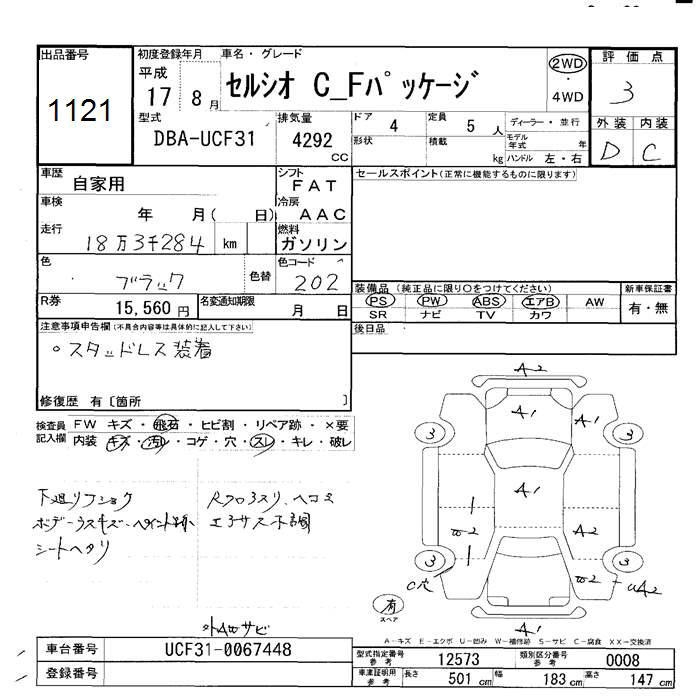 出品番号
1121
初度登録年月
平成
17 8月
車名・グレード
セルシオ C_Fパッケージ
2WD
4WD
評価点
3
型式
DBA-UCF31
排気量
4292 cc
ドア
4
定員
5 人
形状
積載
kg
ディーラー・並行
モデル年式 年
ハンドル 左・右
外装 内装
D C
車歴
自家用
シフト
FAT
車検
年 月( 日)
冷房
AAC
走行
18万3千284 km
燃料
ガソリン
色
ブラック
色替
色コード
202
R券
15,560 円
名変通知期限
月 日
セールスポイント(正常に機能するものに限ります)
装備品(純正品に限り○をつけてください)
PS PW ABS エアB AW
SR ナビ TV カワ
新車保証書
有・無
後日品
注意事項申告欄(不具合内容等は具体的に記入して下さい)
○スタッドレス装着
修復歴 有〔箇所 〕
検査員記入欄
FW キズ・飛石・ヒビ割・リペア跡・×要
内装 キズ・汚れ・コゲ・穴・スレ・キレ・破レ
下廻リフショク
シートヘタリ
エアサス不調
外AWサビ
A2
A1
A1
3
3
A1
A2
W2
W2
UA2
3
3
C穴
有
スペア
A1
A-キズ E-エクボ U-凹み W-補修跡 S-サビ C-腐食 XX-交換済
車台番号
UCF31-0067448
登録番号
型式指定番号 参考
12573
類別区分番号 参考
0008
車庫証明用 参考
長さ 501 cm 幅 183 cm 高さ 147 cm